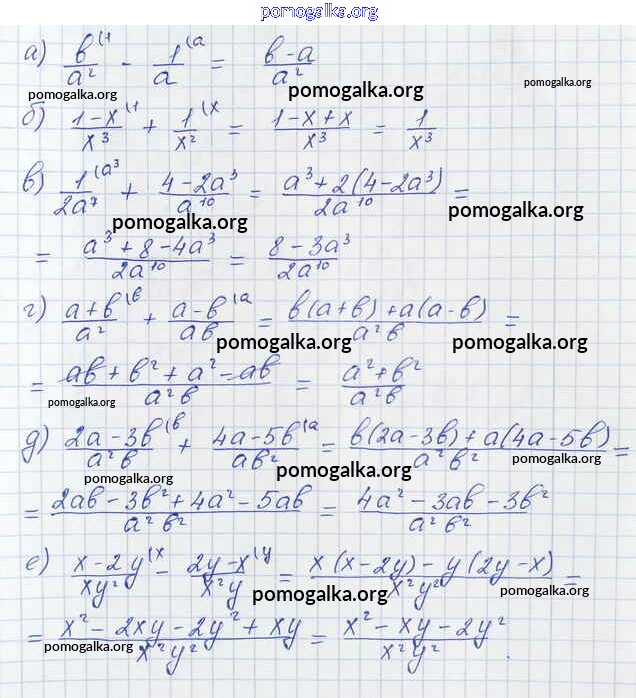 pomogalka.org
а) b/a² (1 − 1/a (a = (b−a)/a²
pomogalka.org pomogalka.org pomogalka.org
б) (1−x)/x³ (1 + 1/x² (x = (1−x+x)/x³ = 1/x³
в) 1/(2a⁷) (a³ + (4−2a³)/a¹⁰ = (a³+2(4−2a³))/(2a¹⁰) =
pomogalka.org pomogalka.org
= (a³+8−4a³)/(2a¹⁰) = (8−3a³)/(2a¹⁰)
г) (a+b)/a² (b + (a−b)/(ab) (a = (b(a+b)+a(a−b))/(a²b) =
pomogalka.org pomogalka.org
= (ab+b²+a²−ab)/(a²b) = (a²+b²)/(a²b)
pomogalka.org pomogalka.org
д) (2a−3b)/(a²b) (b + (4a−5b)/(ab²) (a = (b(2a−3b)+a(4a−5b))/(a²b²) =
pomogalka.org pomogalka.org pomogalka.org
= (2ab−3b²+4a²−5ab)/(a²b²) = (4a²−3ab−3b²)/(a²b²)
pomogalka.org
е) (x−2y)/(xy²) (x − (2y−x)/(x²y) (y = (x(x−2y)−y(2y−x))/(x²y²) =
pomogalka.org pomogalka.org
= (x²−2xy−2y²+xy)/(x²y²) = (x²−xy−2y²)/(x²y²).
pomogalka.org pomogalka.org